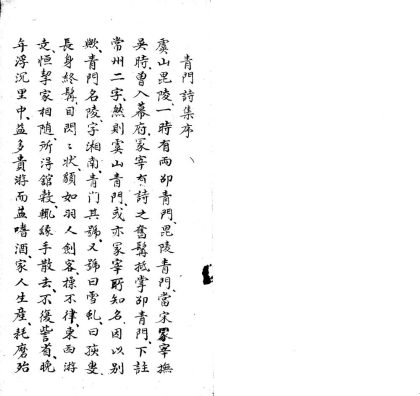 青門詩集序
虞山毘陵、一時有兩邵青門、毘陵青門、當宋冢宰撫
吳時、曾入幕府、冢宰有詩之奮髯抵掌邵青門、下註
常州二字、然則虞山青門、或亦冢宰所知名、因以別
歟、青門名陵、字湘南、青门其號、又號曰雪虬、曰
長身終髯、目閃〻、狀頗如羽人劍客、標不律、東西游
走、恒挈家相隨、所得館穀、輒緣手散去、不復訾省、晚
年浮沉里中、益多貴游而益嗜酒、家人生產、耗磨殆